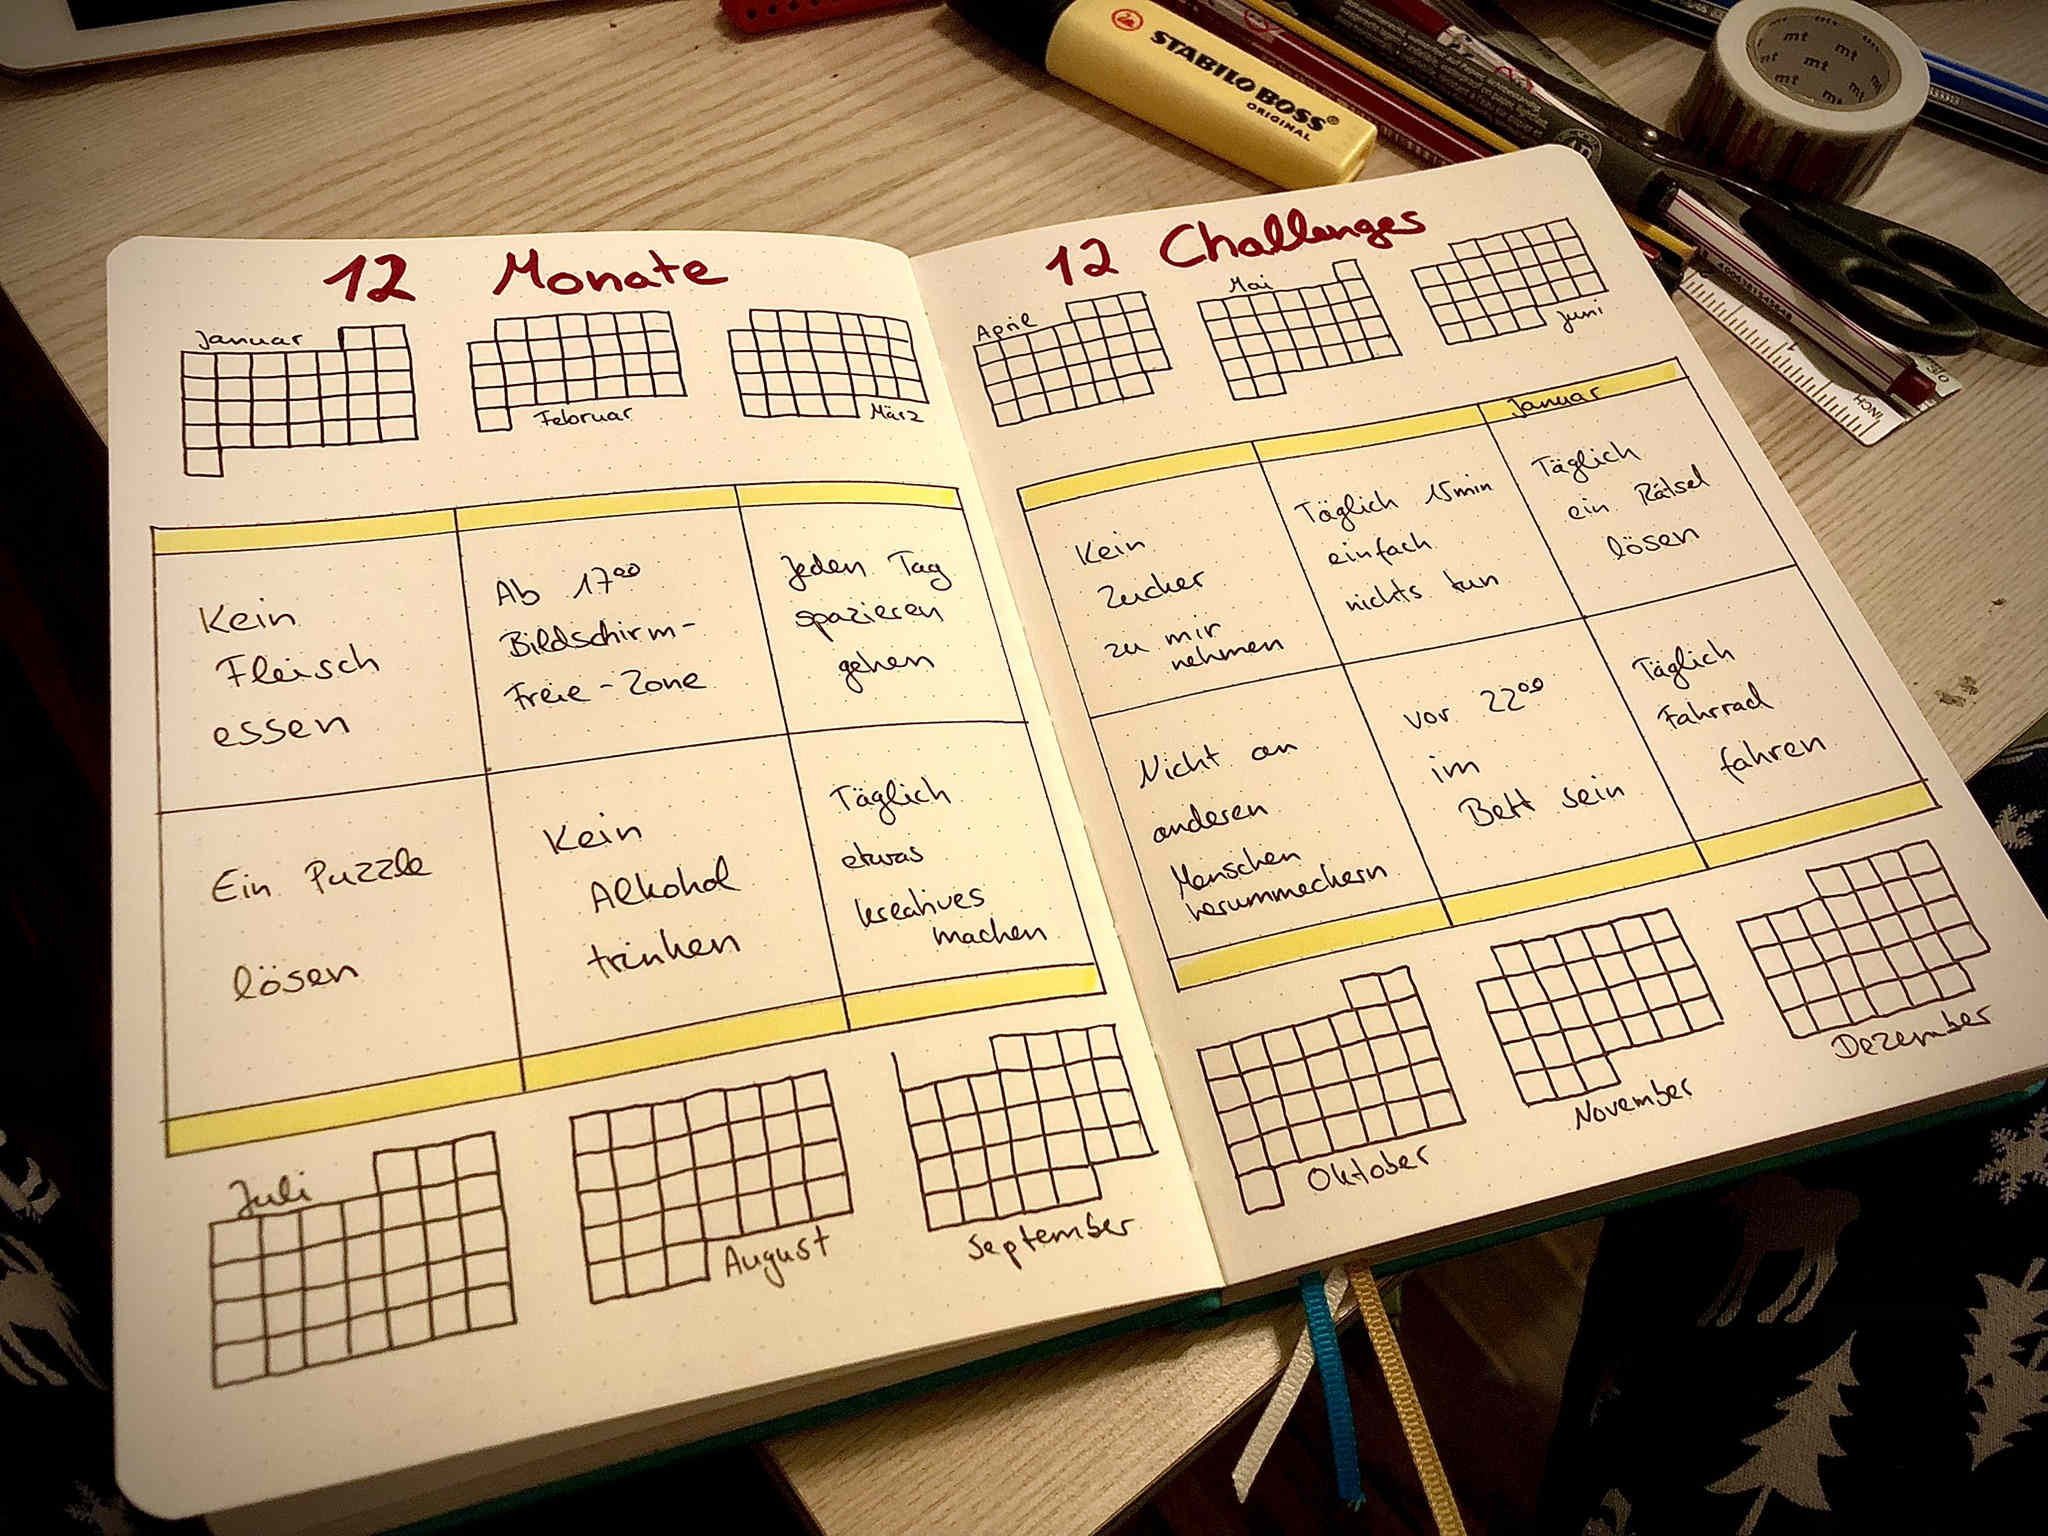 STABILO BOSS®
ORIGINAL
mt mt mt
mt mt
INCH
12 Monate
Januar
Februar
März
Kein
Fleisch
essen
Ab 17⁰⁰
Bildschirm-
Freie-Zone
Jeden Tag
spazieren
gehen
Ein Puzzle
lösen
Kein
Alkohol
trinken
Täglich
etwas
kreatives
machen
Juli
August
September
12 Challenges
April
Mai
Juni
Kein
Zucker
zu mir
nehmen
Täglich 15min
einfach
nichts tun
Januar
Täglich
ein Rätsel
lösen
Nicht an
anderen
Menschen
herummeckern
vor 22⁰⁰
im
Bett sein
Täglich
Fahrrad
fahren
Oktober
November
Dezember